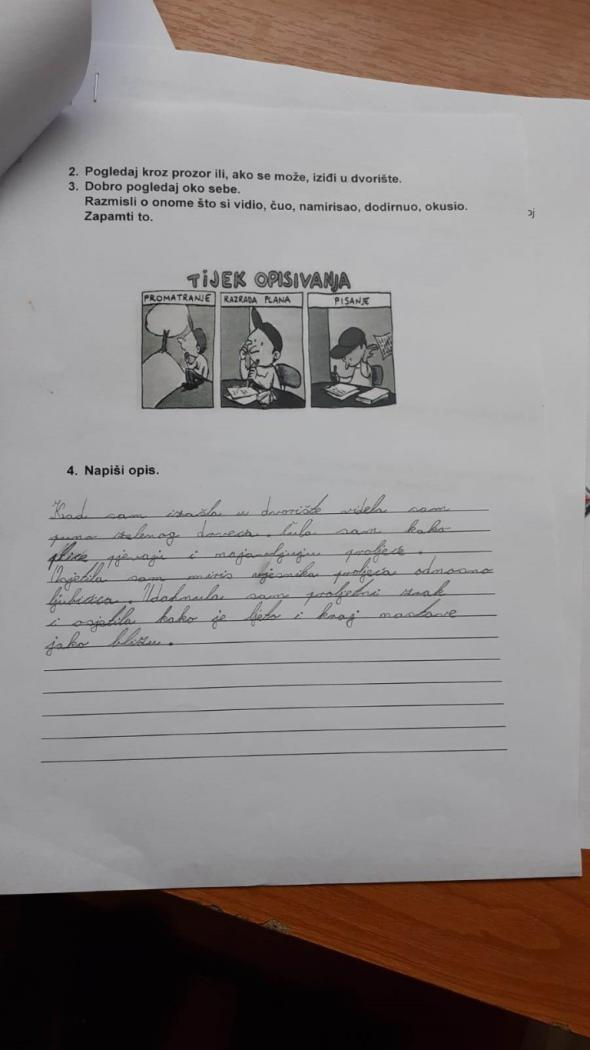 2. Pogledaj kroz prozor ili, ako se može, iziđi u dvorište.
3. Dobro pogledaj oko sebe.
Razmisli o onome što si vidio, čuo, namirisao, dodirnuo, okusio.
Zapamti to.
oj
TIJEK OPISIVANJA
PROMATRANJE
RAZRADA PLANA
PISANJE
4. Napiši opis.
Kad sam izašla u dvorište videla sam
puno zelenog drveća. Čula sam kako
ptice pjevaju i najavljuju proljeće.
Osjetila sam miris vjesnika proljeća odnosno
ljubičica. Udahnula sam proljetni zrak
i osjetila kako je ljeto i kraj nastave
jako blizu.